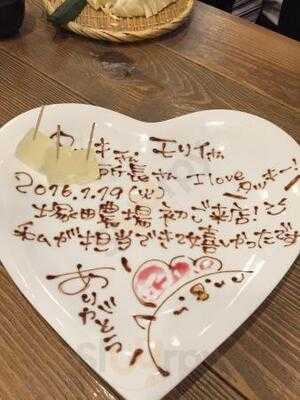 タッキーさん モリイさん
所長さん I love タッキー♡
2016.7.19(火)
塚田農場 初ご来店!
私が担当できて嬉しかったです
ありがとう